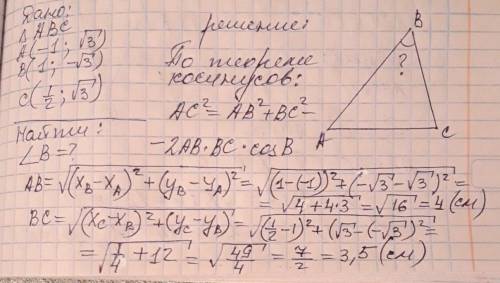 Дано:
Δ ABC
A(-1; √3)
B(1; -√3)
C(1/2; √3)
Найти:
∠B = ?
решение:
По теореме
косинусов:
AC² = AB² + BC² -
-2AB·BC·cosB
B
?
A
C
AB = √((x_B - x_A)² + (y_B - y_A)²) = √((1-(-1))² + (-√3 - √3)²) =
= √(4+4·3) = √16 = 4 (см)
BC = √((x_C - x_B)² + (y_C - y_B)²) = √((1/2 - 1)² + (√3 - (-√3))²) =
= √(1/4 + 12) = √(49/4) = 7/2 = 3,5 (см)